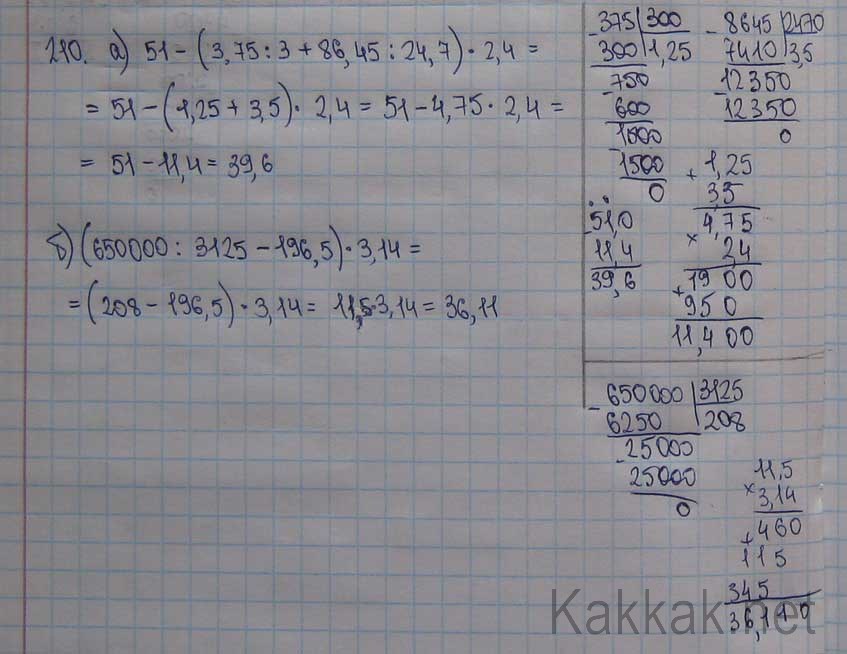 210. а) 51-(3,75:3+86,45:24,7)·2,4=
=51-(1,25+3,5)·2,4=51-4,75·2,4=
=51-11,4=39,6
б)(650000:3125-196,5)·3,14=
=(208-196,5)·3,14=11,5·3,14=36,11
-375|300
300|1,25
-750
600
-1500
1500
0
-8645|2470
7410|3,5
-12350
12350
0
+1,25
3,5
4,75
×2,4
+1900
950
11,400
-51,0
11,4
39,6
-650000|3125
6250|208
-25000
25000
0
11,5
×3,14
+460
115
345
36,110
Kakkak.net